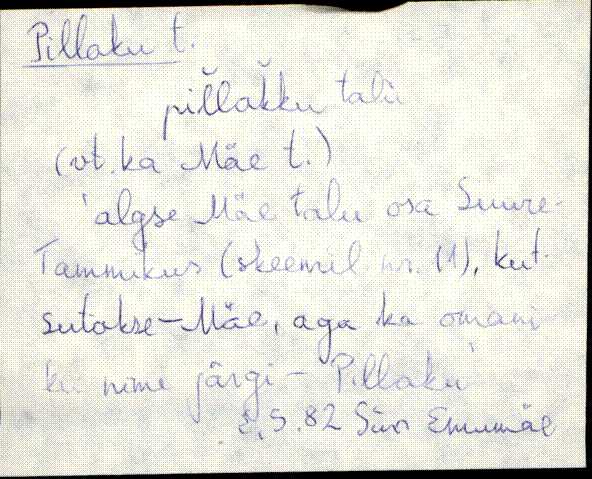 Pillaku t.
pil̆lak̆ku talu
(vt. ka Mäe t.)
'algse Mäe talu osa Suure-
Tammikus (skeemil nr. 11), kut-
sutakse – Mäe, aga ka omani-
ku nime järgi – Pillaku'
5.82 Emumäe